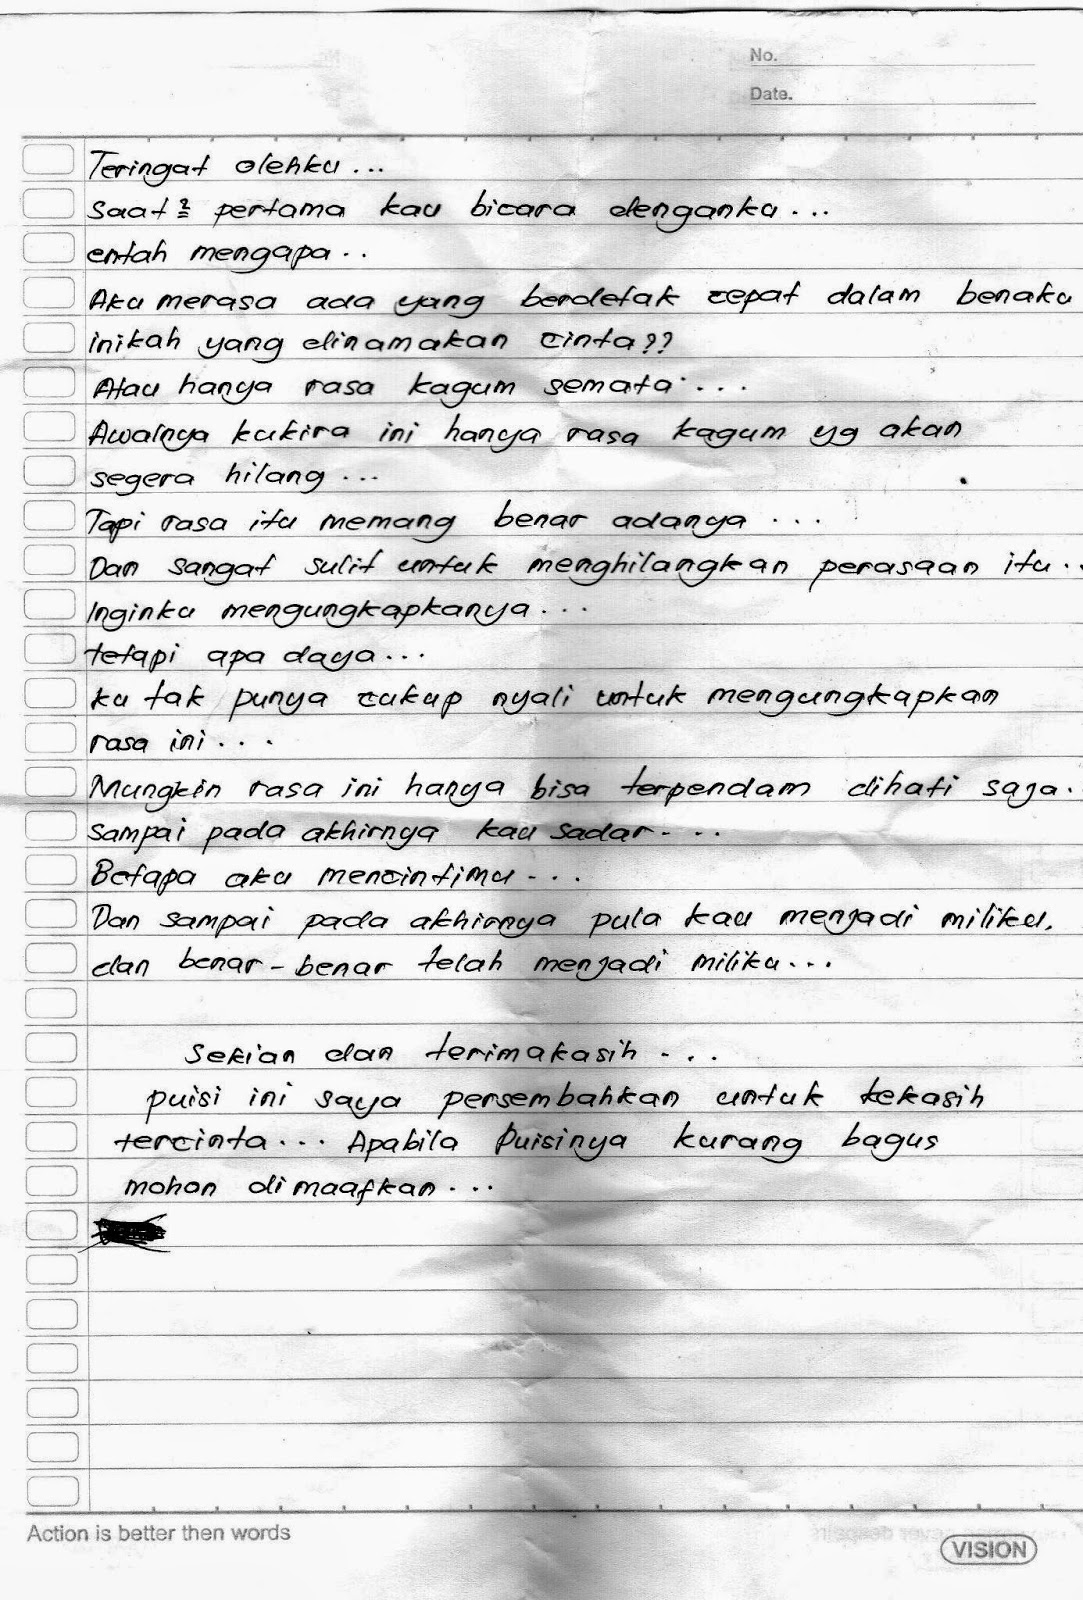 No.
Date.
Teringat olehku...
Saat² pertama kau bicara denganku...
entah mengapa..
Aku merasa ada yang berdetak cepat dalam benaku
inikah yang dinamakan cinta??
Atau hanya rasa kagum semata...
Awalnya kukira ini hanya rasa kagum yg akan
segera hilang...
Tapi rasa itu memang benar adanya ...
Dan sangat sulit untuk menghilangkan perasaan itu..
Inginku mengungkapkanya...
tetapi apa daya...
ku tak punya cukup nyali untuk mengungkapkan
rasa ini...
Mungkin rasa ini hanya bisa terpendam dihati saja.
sampai pada akhirnya kau sadar...
Betapa aku mencintimu...
Dan sampai pada akhirnya pula kau menjadi miliku.
dan benar-benar telah menjadi miliku...
Sekian dan terimakasih...
puisi ini saya persembahkan untuk kekasih
tercinta... Apabila Puisinya kurang bagus
mohon dimaafkan...
Action is better then words
VISION